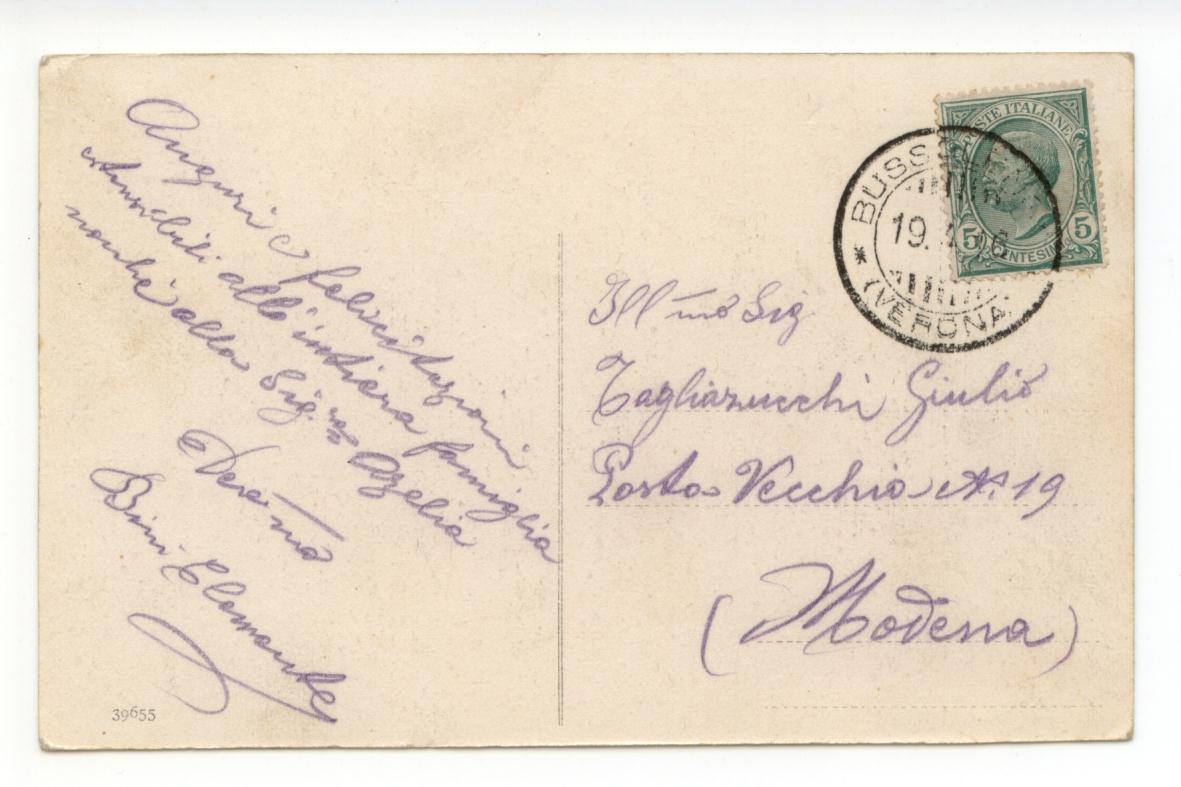 Auguri e felicitazioni
estensibili all'intiera famiglia
nonchè alla Sig.ra Azelia
Dev.mo
Bini Clemente
39655
POSTE ITALIANE
5 CENTESIMI 5
BUSSOLENGO
19.
(VERONA)
Ill mo Sig
Tagliazucchi Giulio
Posta Vecchia N. 19
(Modena)